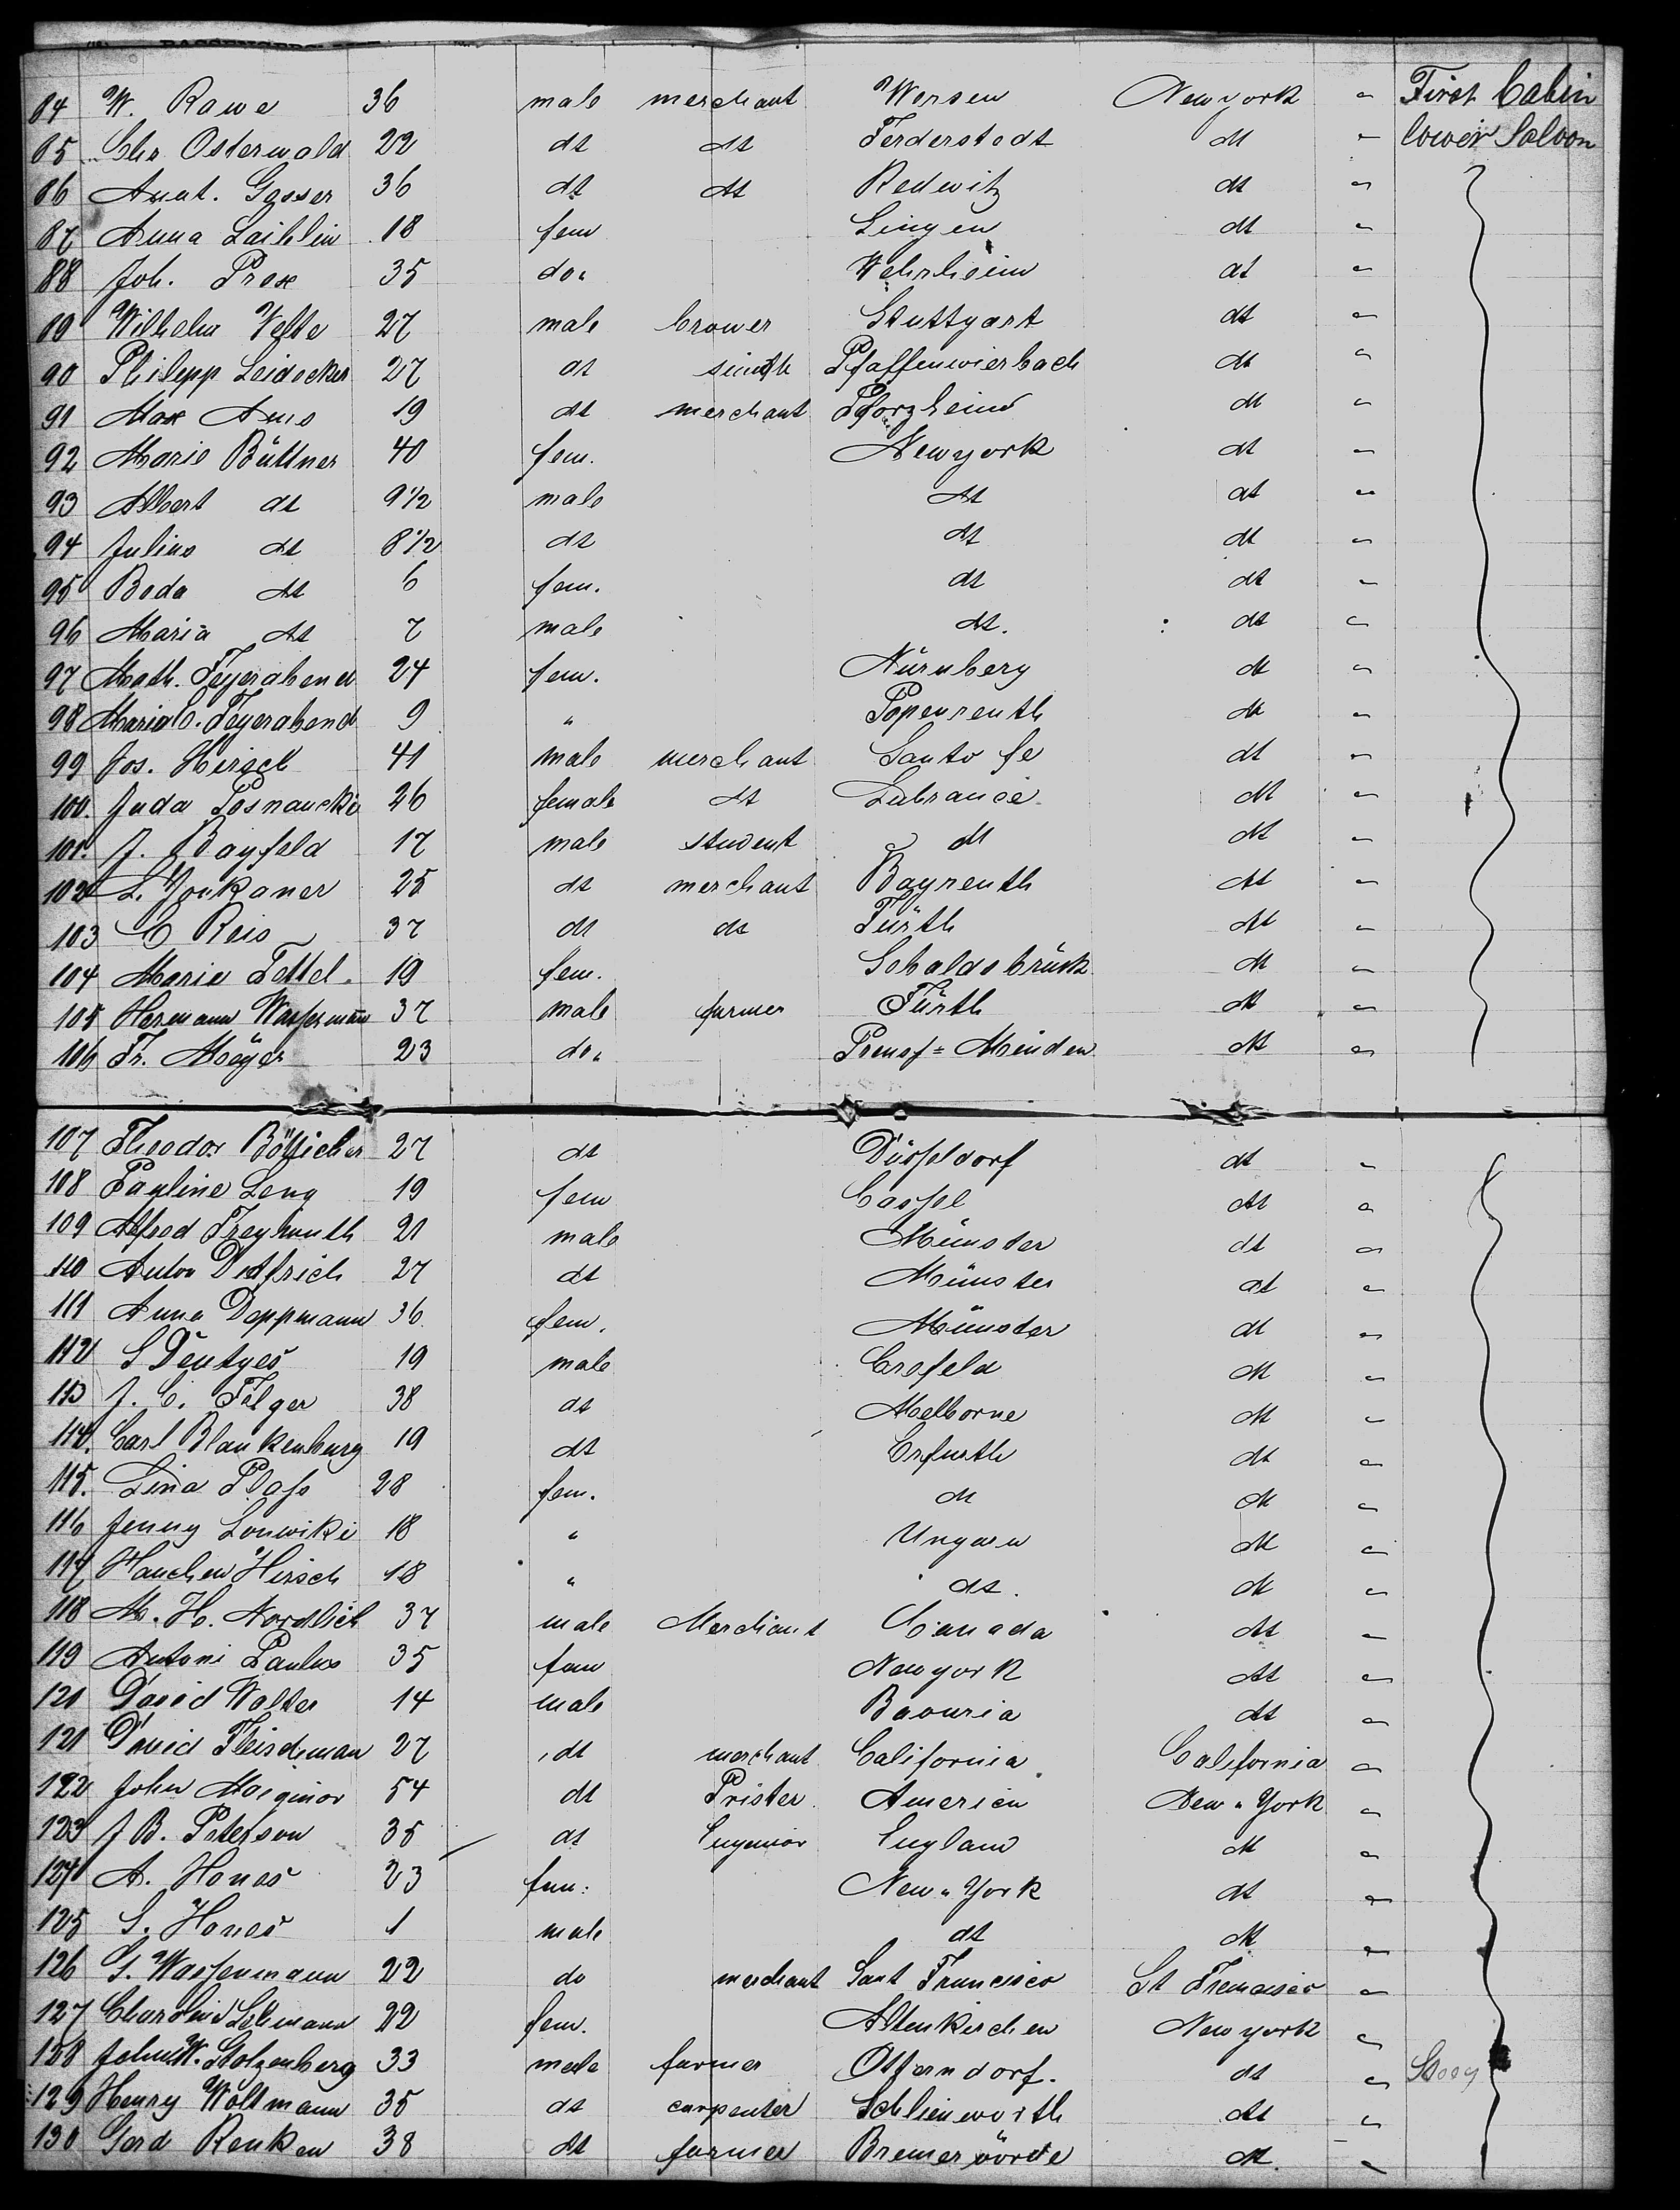 PASSENGERS LIST
84 W. Rawe 36 male merchant Wersen Newyork " First Cabin
85 Chr Osterwald 22 dt dt Ferderstedt dt " lower Saloon
86 Anat. Gasser 36 dt dt Redwitz dt "
87 Anna Laiblin 18 fem Lingen dt "
88 Joh. Prox 35 do. Wehrheim dt "
89 Wilhelm Velte 27 male brower Stuttgart dt "
90 Philepp Leidecker 27 dt smith Pfaffenwierbach dt "
91 Max Ams 19 dt merchant Pforzheim dt "
92 Marie Büttner 40 fem. Newyork dt "
93 Albert dt 9 1/2 male dt dt "
94 Julius dt 8 1/2 dt dt dt "
95 Beda dt 6 fem. dt dt "
96 Maria dt 7 male dt. dt "
97 Math. Feyerabend 24 fem. Nürnberg dt "
98 Maria C. Feyerabend 9 " Popenreuth dt "
99 Jos. Hirsch 41 male merchant Santo fe dt "
100. Juda Posnancki 26 female dt Lubranice dt "
101. J. Bayfeld 17 male student dt dt "
102 L. Jonkaner 25 dt merchant Bayreuth dt "
103 C Reis 37 dt dt Fürth dt "
104 Marie Zettel 19 fem. Sebaldsbrück dt "
105 Hermann Wassermann 37 male farmer Fürth dt "
106 Fr. Meyer 23 do. Preuss = Minden dt "
107 Theodor Bötticher 27 dt Düsseldorf dt "
108 Pauline Leng 19 fem Cassel dt "
109 Alfred Freymuth 21 male Münster dt "
110 Anton Dettfrich 27 dt Münster dt "
111 Anna Deppmann 36. fem. Münster dt "
112 S Dentges 19 male Crefeld dt "
113 J. C. Filger 38 dt Melborne dt "
114. Carl Blankenburg 19 dt Erfurth dt "
115. Lina Plass 28 fem. dt dt "
116 Jenny Lonwiki 18 " Ungarn dt "
117 Hanchen Hirsch 18 " dt. dt "
118 M. H. Nordlich 37 male Merchant Canada dt "
119 Antoni Paulus 35 fem Newyork dt "
120 David Walter 14 male Bavuria dt "
121 David Fleischman 27 dt merchant California California "
122 John Macginor 54 dt Prister America New-York "
123 J B. Peterson 35 dt Engenior England dt "
124 A. Hones 23 fem. New-York dt "
125 S. Hones 1 male dt dt "
126 S. Wassermann 22 do merchant Sant Francisco St Francisco "
127 Charoline Lehmann 22 fem. Altenkirchen Newyork "
128 John W. Stolzenberg 33 male farmer Otterndorf. dt "
129 Henry Woltmann 35 dt carpenter Schlienworth dt "
130 Gerd Renken 38 dt farmer Bremervörde dt. "